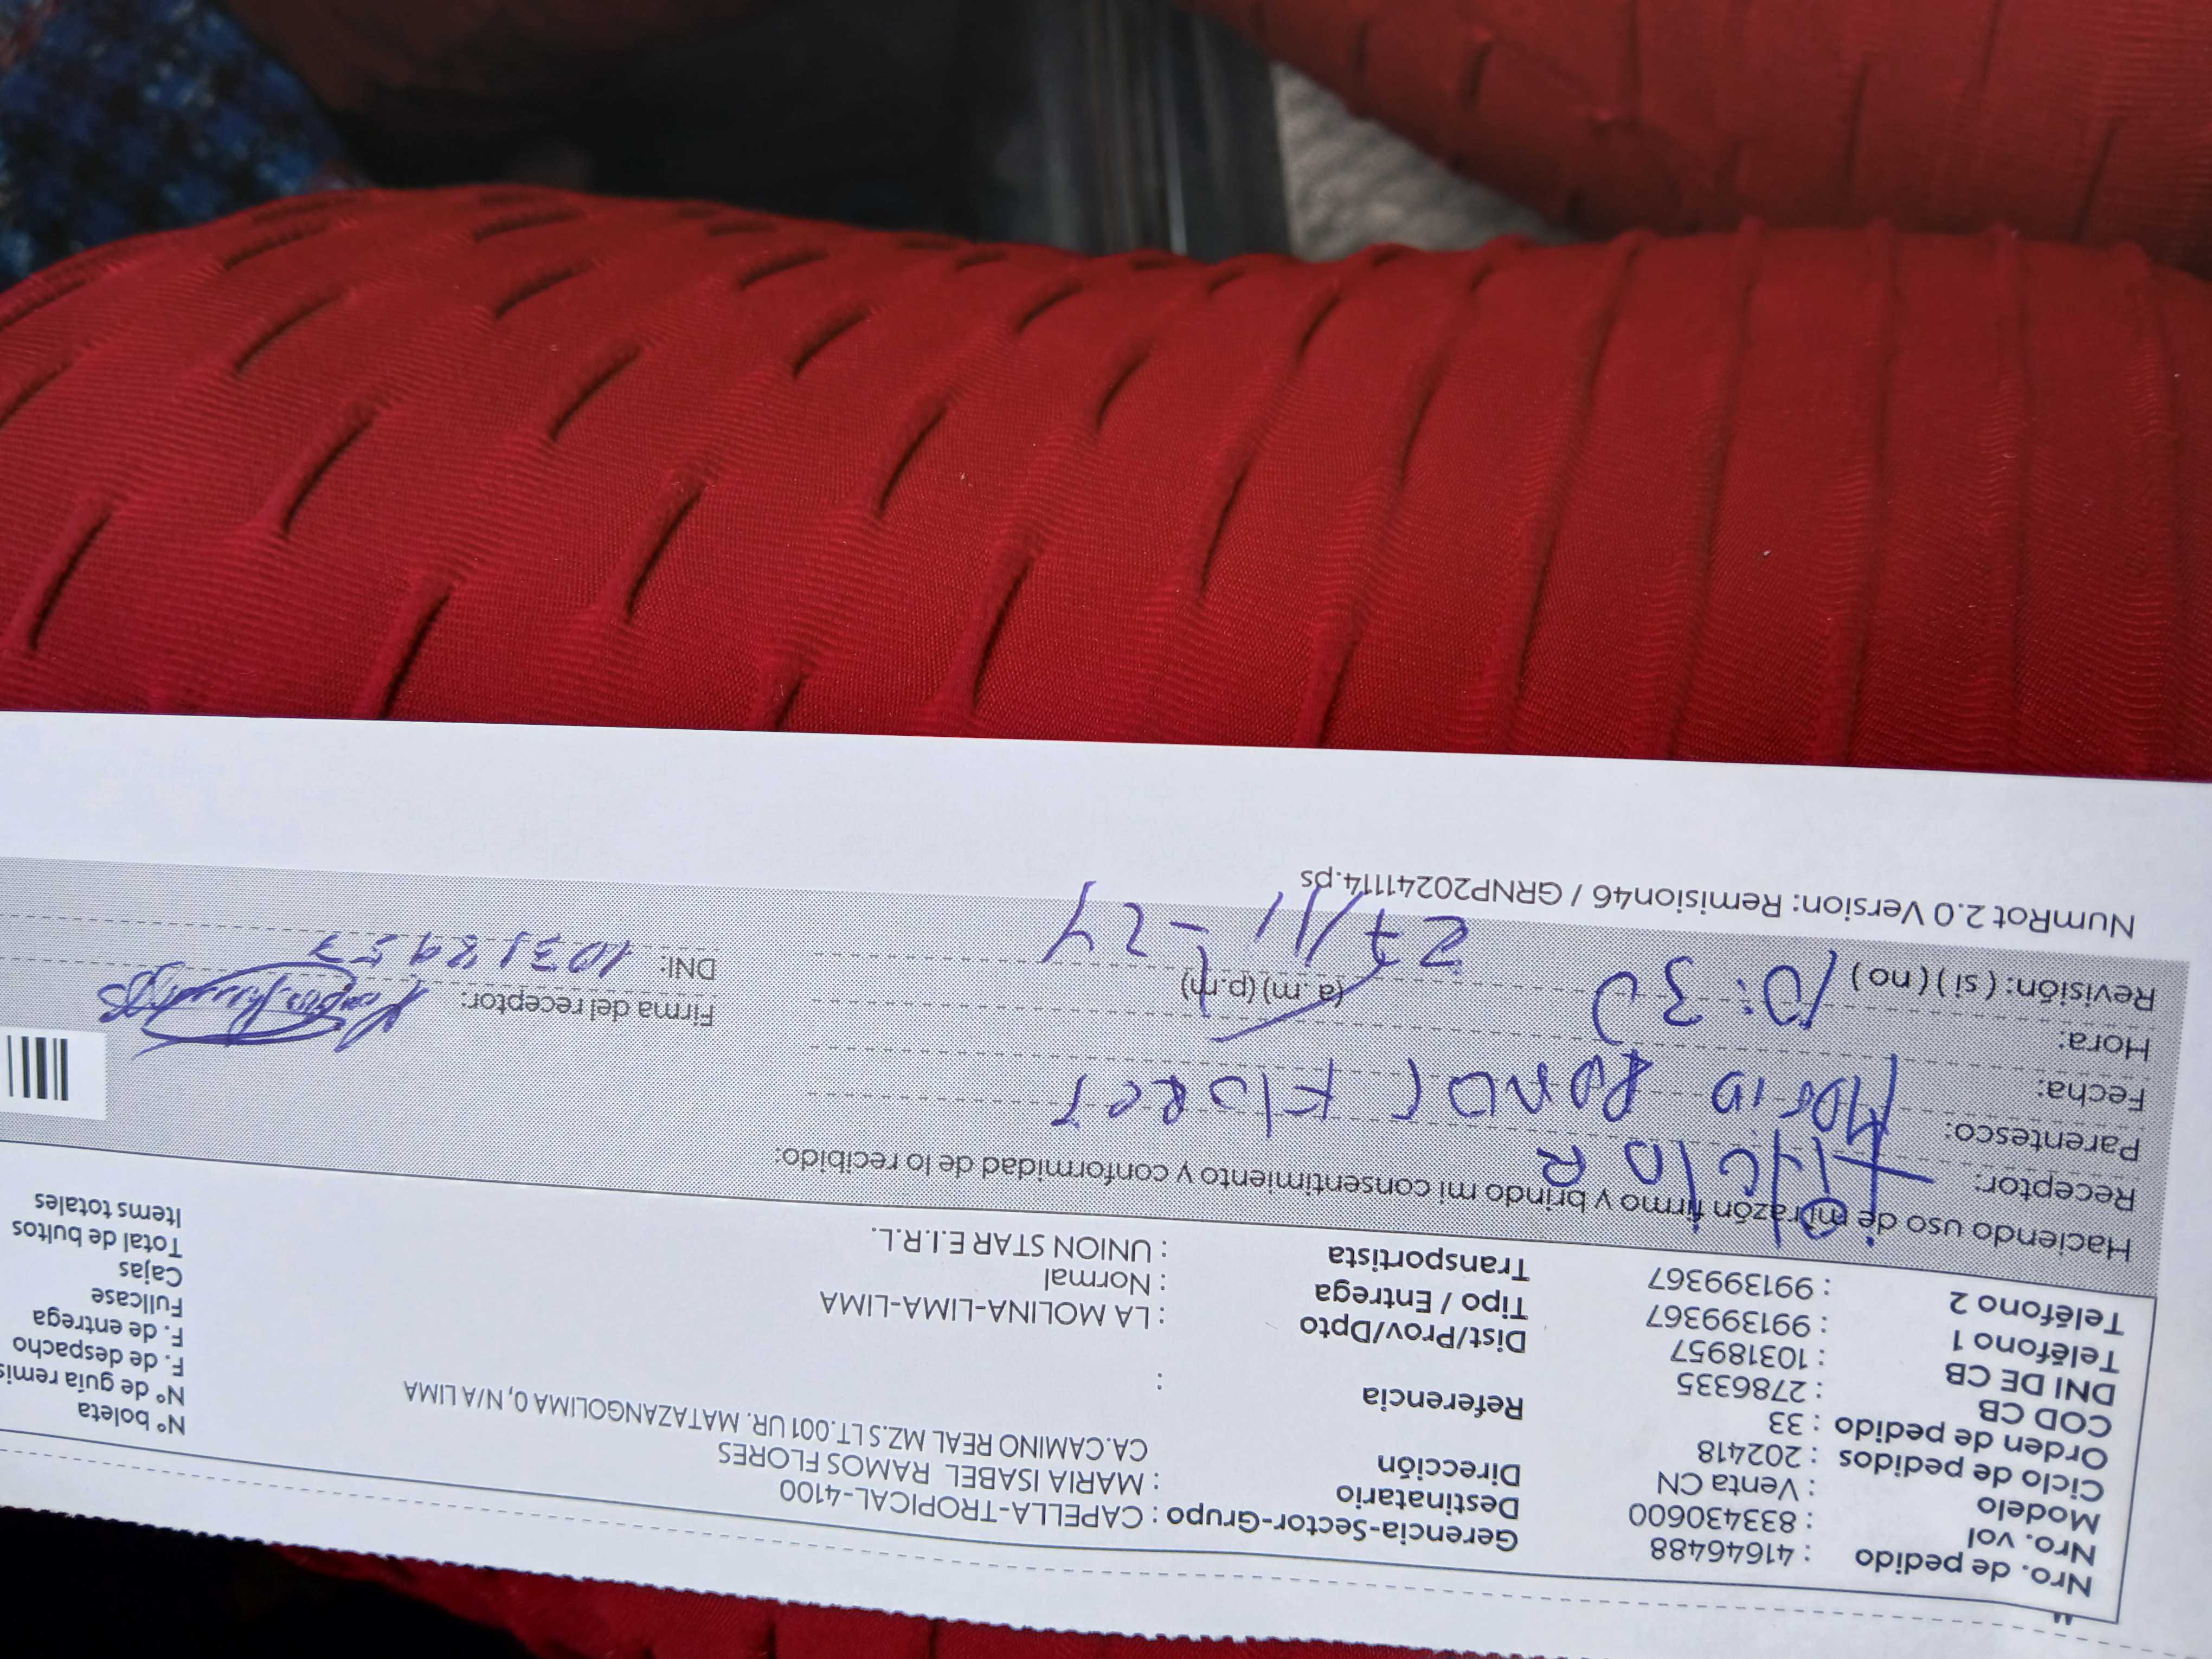 Nro. de pedido : 41646488
Nro. vol : 833430600
Modelo : Venta CN
Ciclo de pedidos : 202418
Orden de pedido : 33
COD CB : 2786335
DNI DE CB : 10318957
Teléfono 1 : 991399367
Teléfono 2 : 991399367
Gerencia-Sector-Grupo : CAPELLA-TROPICAL-4100
Destinatario : MARIA ISABEL RAMOS FLORES
Dirección CA.CAMINO REAL MZ.S LT.001 UR. MATAZANGOLIMA 0, N/A LIMA
Referencia :
Dist/Prov/Dpto : LA MOLINA-LIMA-LIMA
Tipo / Entrega : Normal
Transportista : UNION STAR E.I.R.L.
N° boleta
N° de guía remis
F. de despacho
F. de entrega
Fullcase
Cajas
Total de bultos
Items totales
Haciendo uso de mi razón firmo y brindo mi consentimiento y conformidad de lo recibido:
Receptor:
Parentesco:
Fecha:
Hora: 10:30 (a. m) (p.m)
Revisión: ( si ) ( no ) 27/11-24
Firma del receptor:
DNI: 10318957
NumRot 2.0 Version: Remision46 / GRNP20241114.ps